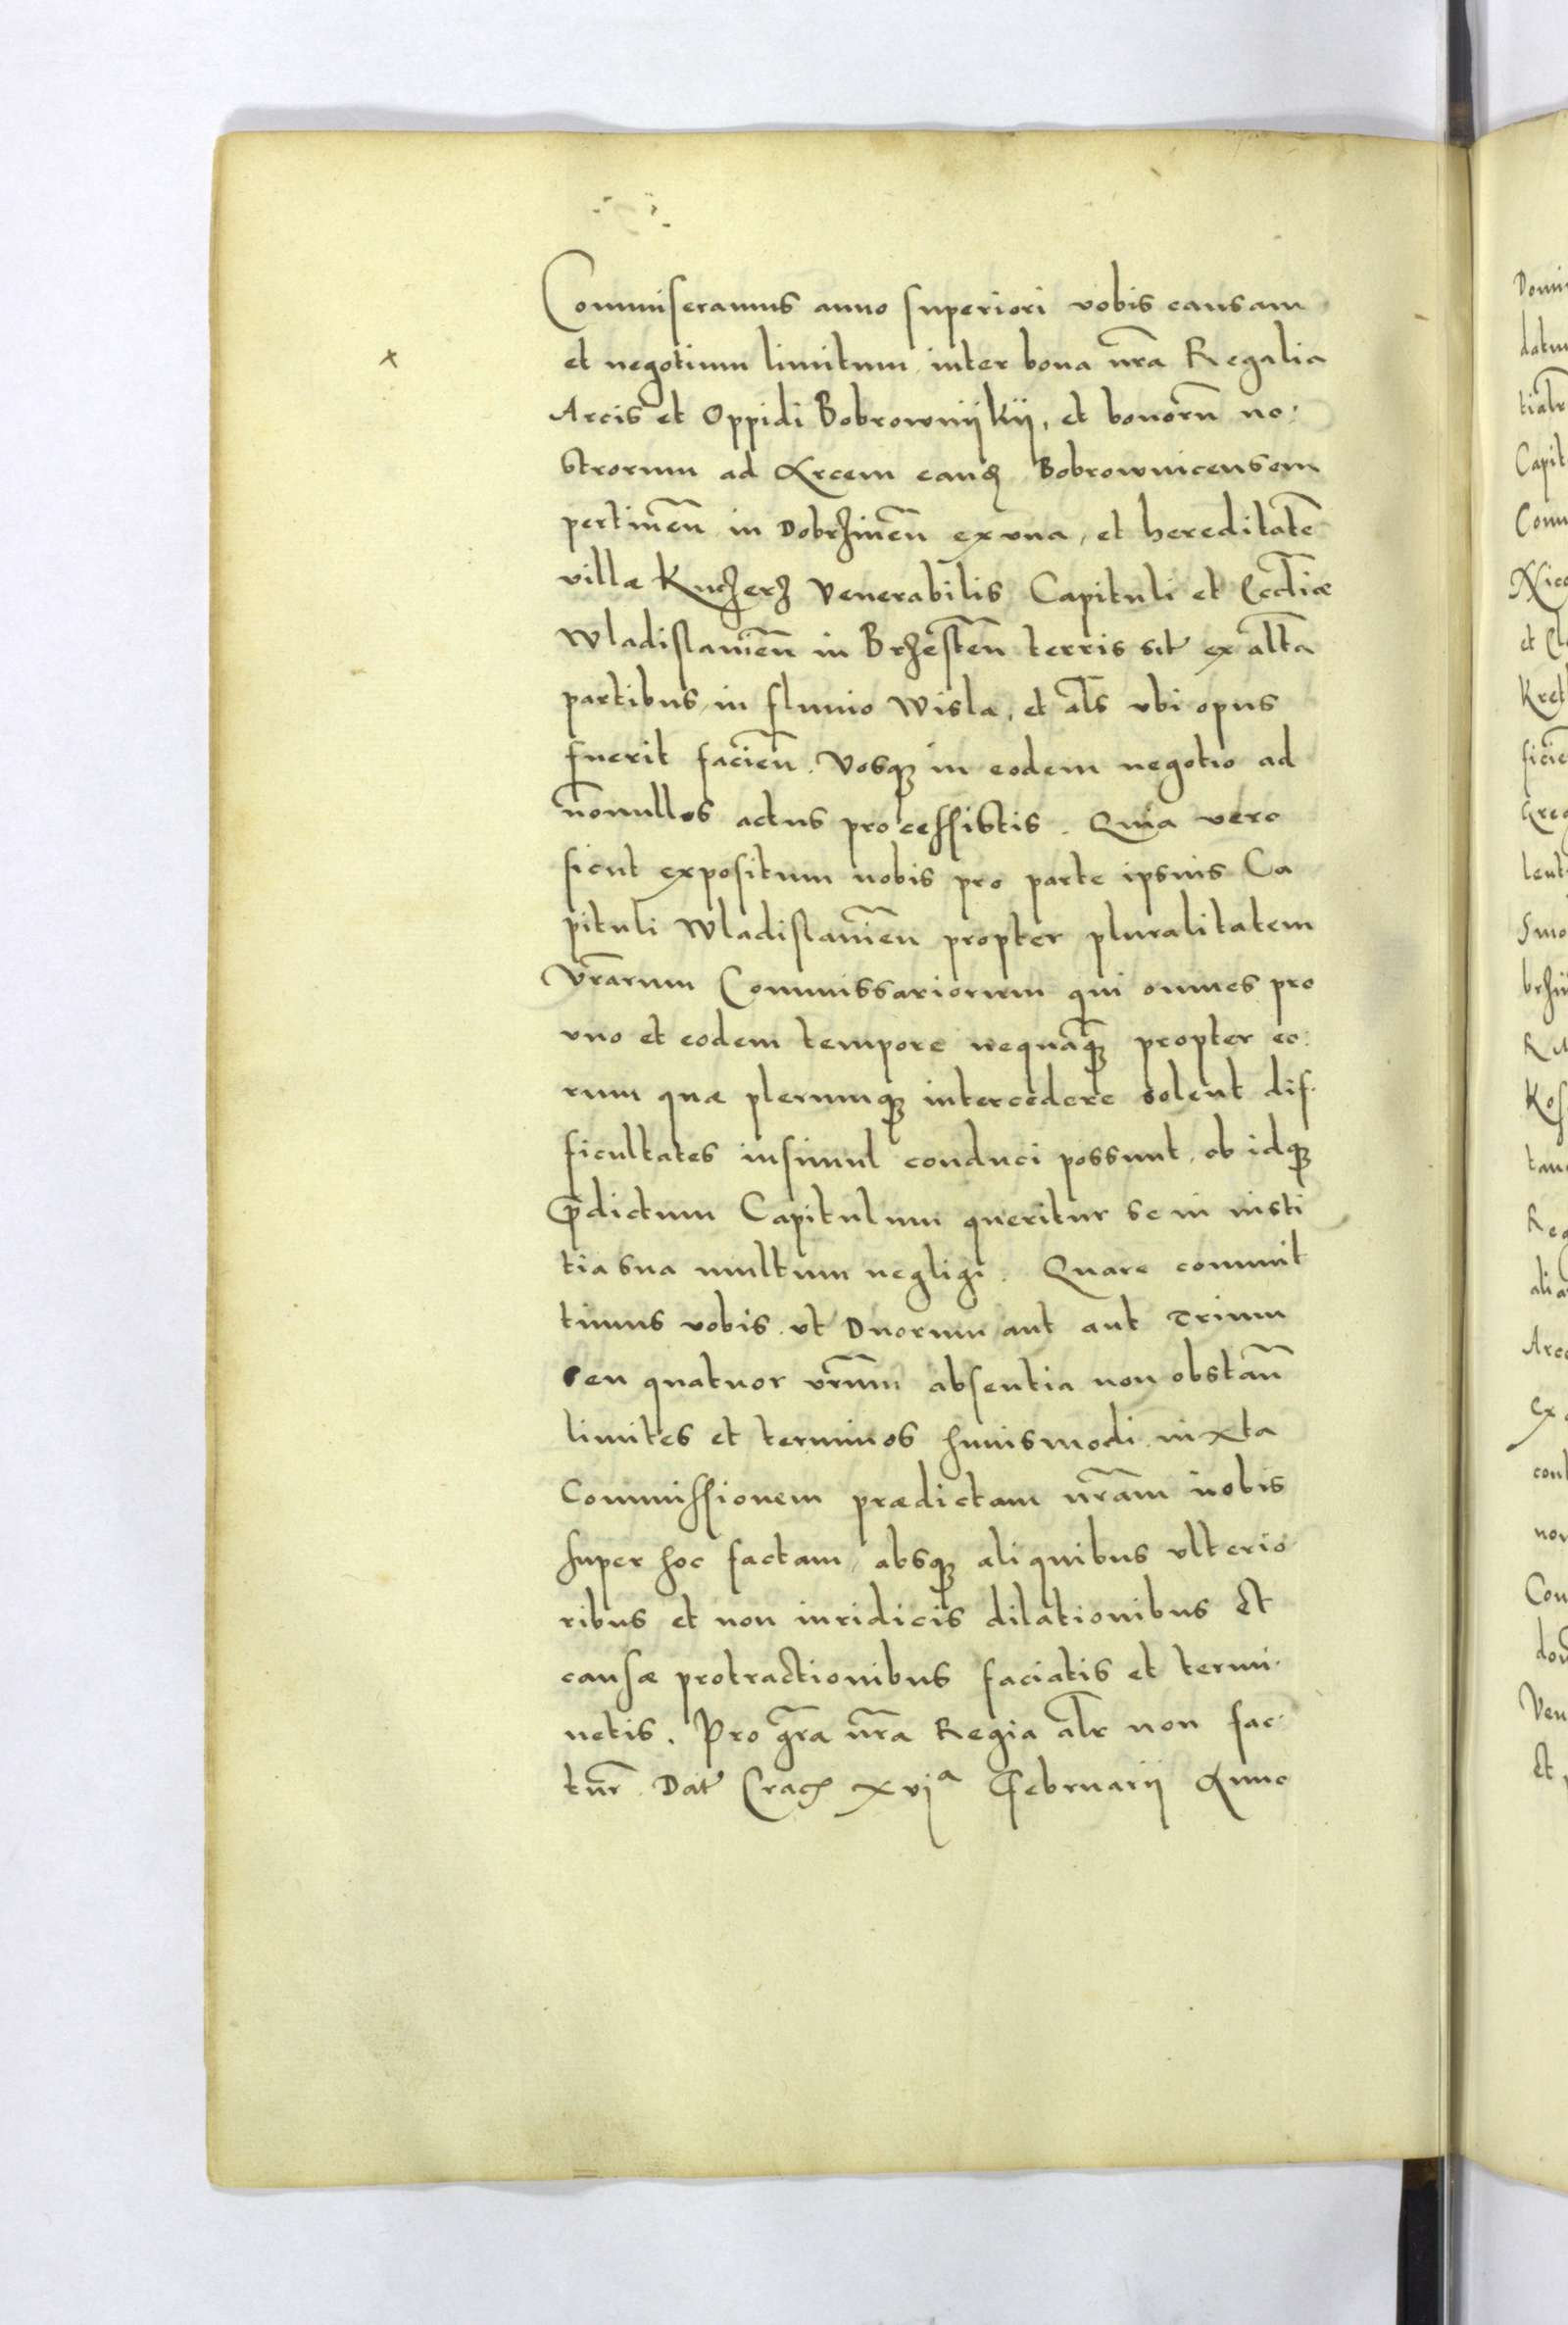 Commiseramus anno superiori vobis causam
et negotium limitum inter bona nrã Regalia
Arcis et Oppidi Bobrownijkij, et bonorũ no:
strorum ad Arcem eandẽ Bobrownicensem
pertineñ in Dobrzineñ ex vna, et hereditatẽ
villæ Kuczerz Venerabilis Capituli et Eccliæ
Wladislauieñ in Brzesteñ terris sit̃ ex altã
partibus, in fluuio Wisla, et als̃ vbi opus
fuerit facieñ. Vosq₃ in eodem negotio ad
nõnullos actus processistis. Quia vero
sicut expositum nobis pro parte ipsius Ca
pituli Wladislauieñ propter pluralitatem
vrãrum Commissariorum qui omnes pro
vno et eodem tempore nequaq̃₃ propter eo:
rum quæ plerumq₃ intercedere solent dif.
ficultates insimul conduci possunt, ob idq₃
p̃dictum Capitulum queritur se in iusti
tia sua multum negligi. Quare commit
timus vobis vt Duorum aut aut Trium
seu quatuor vrũm absentia non obstañ
limites et terminos huiusmodi iuxta
Commissionem prædictam nrãm vobis
super hoc factam, absq₃ aliquibus vlterio
ribus et non iuridicis dilationibus et
causæ protractionibus faciatis et termi.
netis. Pro grã nrã Regia alr̃ non fac.
tur̃. Dat̃ Crac̃ xvjᵃ Februarij Anno
Domi
datu
tialr
Capit
Com
Nico
et Cl
Kret
ficie
Greg
leut
Smo
brzii
Ru
Kos
tan
Reg
alia
Arc
Ex
con
non
Con
Ven
et